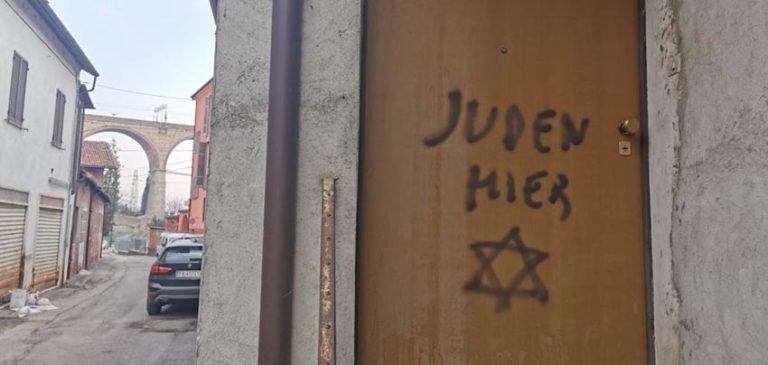 JUDEN
HIER